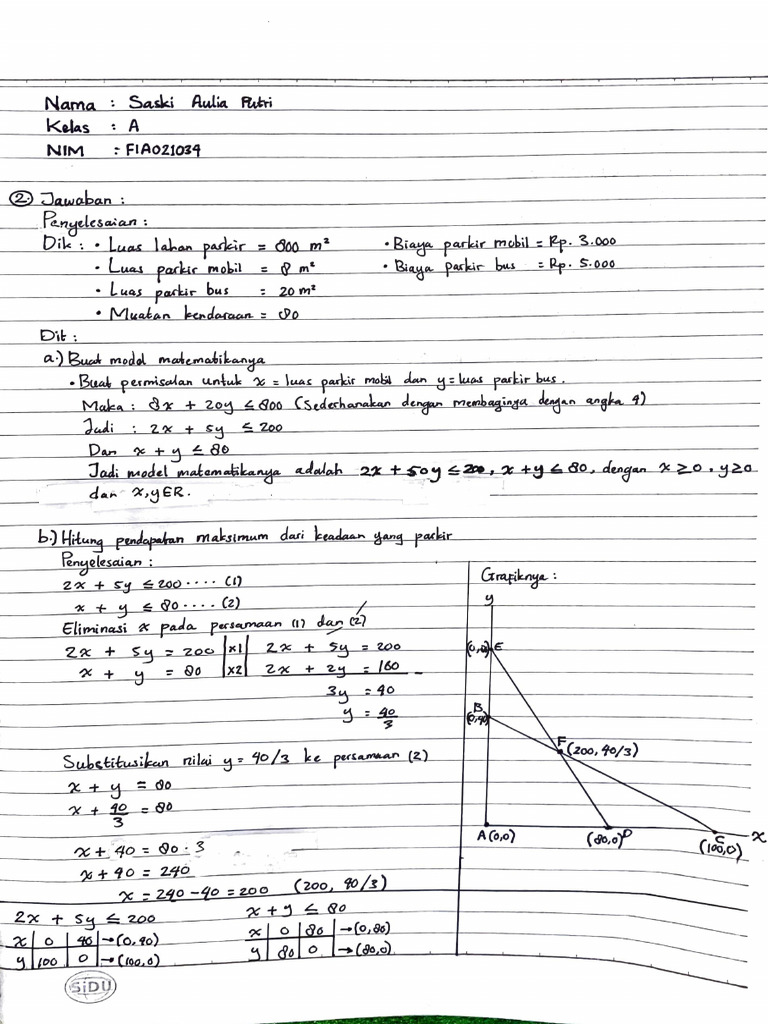 Nama : Saski Aulia Putri
Kelas : A
NIM : F1A021034
2. Jawaban :
Penyelesaian :
Dik : • Luas lahan parkir = 800 m² • Biaya parkir mobil = Rp. 3.000
• Luas parkir mobil = 8 m² • Biaya parkir bus = Rp. 5.000
• Luas parkir bus = 20 m²
• Muatan kendaraan = 80
Dit :
a.) Buat model matematikanya
• Buat permisalan untuk x = luas parkir mobil dan y = luas parkir bus.
Maka : 8x + 20y ≤ 800 (Sederhanakan dengan membaginya dengan angka 4)
Jadi : 2x + 5y ≤ 200
Dan x + y ≤ 80
Jadi model matematikanya adalah 2x + 50y ≤ 200, x + y ≤ 80, dengan x ≥ 0, y ≥ 0
dan x,y ∈ R.
b.) Hitung pendapatan maksimum dari keadaan yang parkir
Penyelesaian :
2x + 5y ≤ 200 .... (1)
x + y ≤ 80 .... (2)
Eliminasi x pada persamaan (1) dan (2)
2x + 5y = 200 |x1| 2x + 5y = 200
x + y = 80 |x2| 2x + 2y = 160 -
3y = 40
y = 40/3
Substitusikan nilai y = 40/3 ke persamaan (2)
x + y = 80
x + 40/3 = 80
x + 40 = 80 . 3
x + 40 = 240
x = 240 - 40 = 200 (200, 40/3)
2x + 5y ≤ 200
x | 0 | 40 → (0, 40)
y | 100 | 0 → (100, 0)
x + y ≤ 80
x | 0 | 80 → (0, 80)
y | 80 | 0 → (80, 0)
Grafiknya :
y
(0,8) E
B
(0,40)
F (200, 40/3)
A (0,0)
(80,0) D
C
(100,0)
x
SiDU